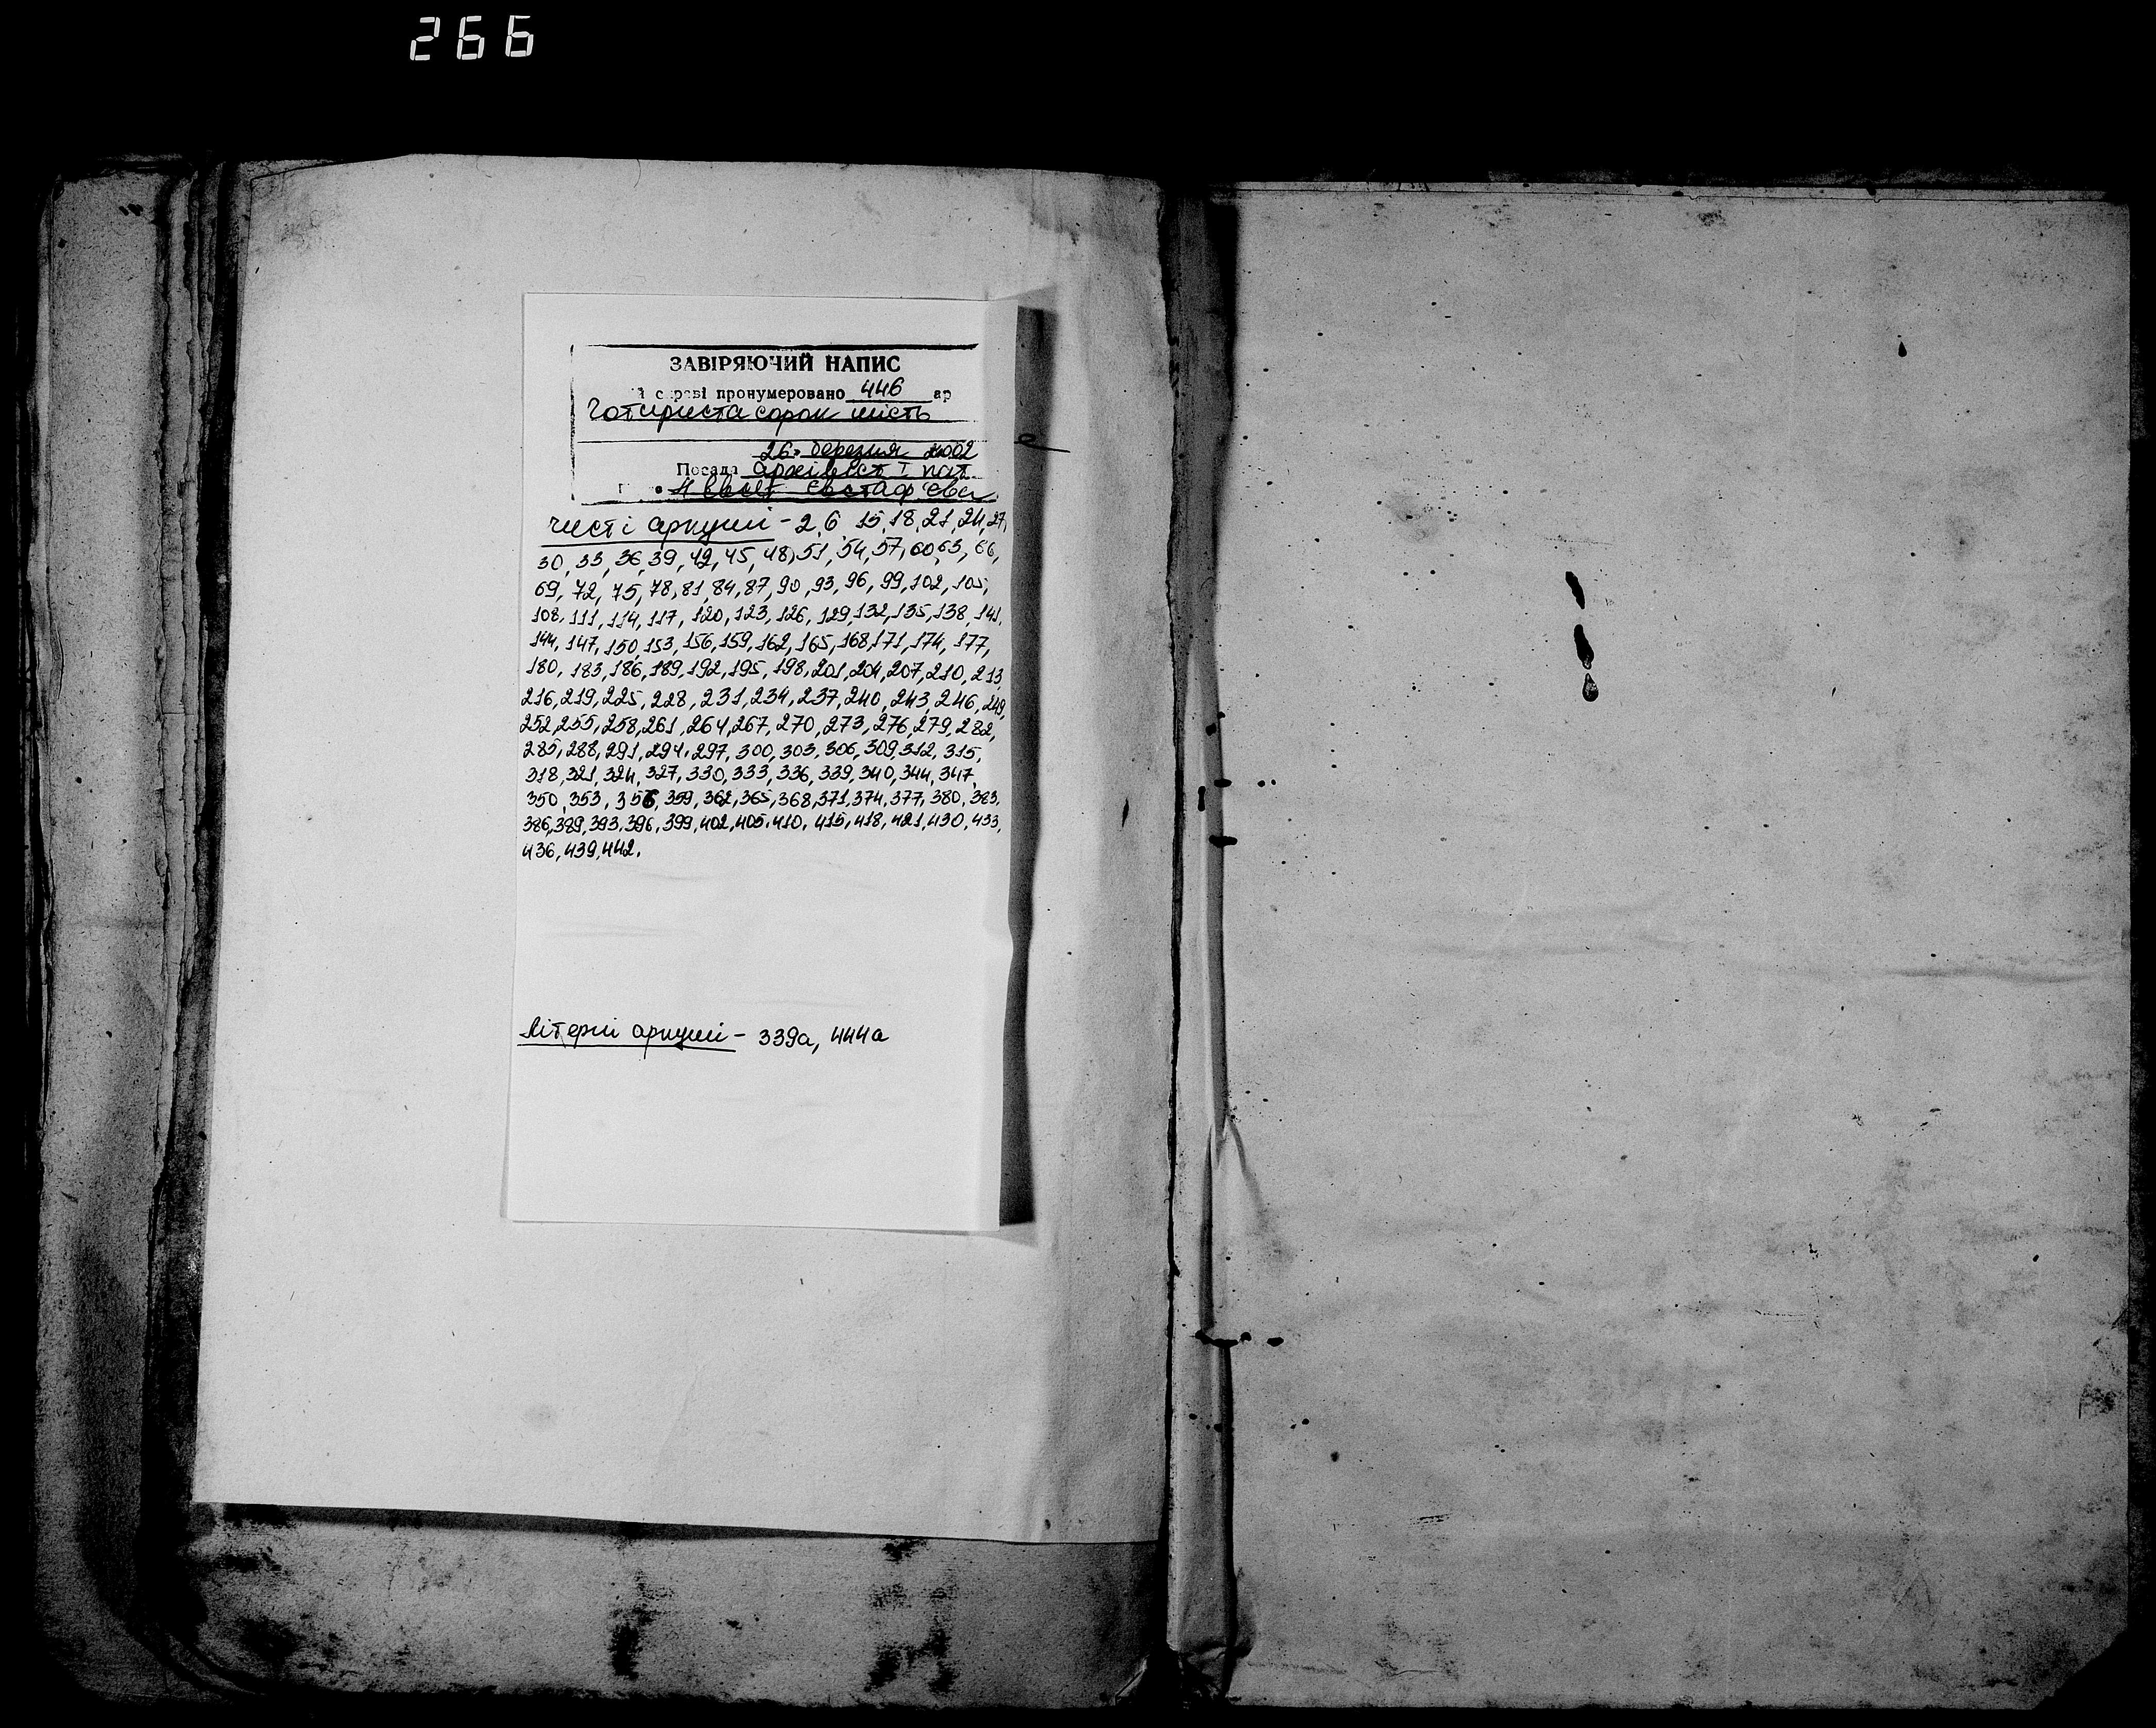 266
ЗАВІРЯЮЧИЙ НАПИС
справі пронумеровано 446 ар
Чотириста сорок шість
26 березня 2002
Посада архівіст I кат
Євстаф'єва
Чисті аркуші - 2, 6 15, 18, 21, 24, 27,
30, 33, 36, 39, 42, 45, 48, 51, 54, 57, 60, 63, 66,
69, 72, 75, 78, 81, 84, 87, 90, 93, 96, 99, 102, 105,
108, 111, 114, 117, 120, 123, 126, 129, 132, 135, 138, 141,
144, 147, 150, 153, 156, 159, 162, 165, 168, 171, 174, 177,
180, 183, 186, 189, 192, 195, 198, 201, 204, 207, 210, 213,
216, 219, 225, 228, 231, 234, 237, 240, 243, 246, 249,
252, 255, 258, 261, 264, 267, 270, 273, 276, 279, 282,
285, 288, 291, 294, 297, 300, 303, 306, 309, 312, 315,
318, 321, 324, 327, 330, 333, 336, 339, 340, 344, 347,
350, 353, 356, 359, 362, 365, 368, 371, 374, 377, 380, 383,
386, 389, 393, 396, 399, 402, 405, 410, 415, 418, 421, 430, 433,
436, 439, 442.
Літерні аркуші - 339а, 444а